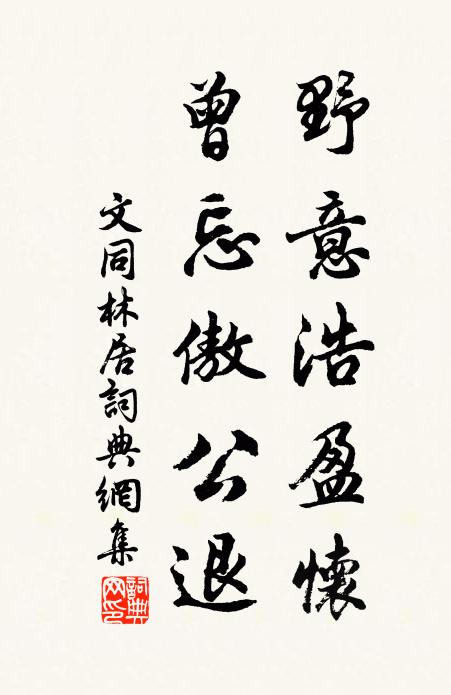 野意浩盈懷
曾忘傲公退
文同林居詞典網集
詞典網印